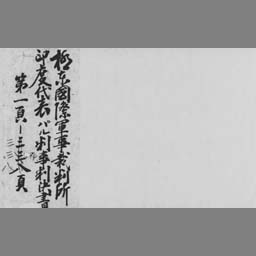 極東國際軍事裁判所
印度代表パル判事判決書
第一頁―三三八頁